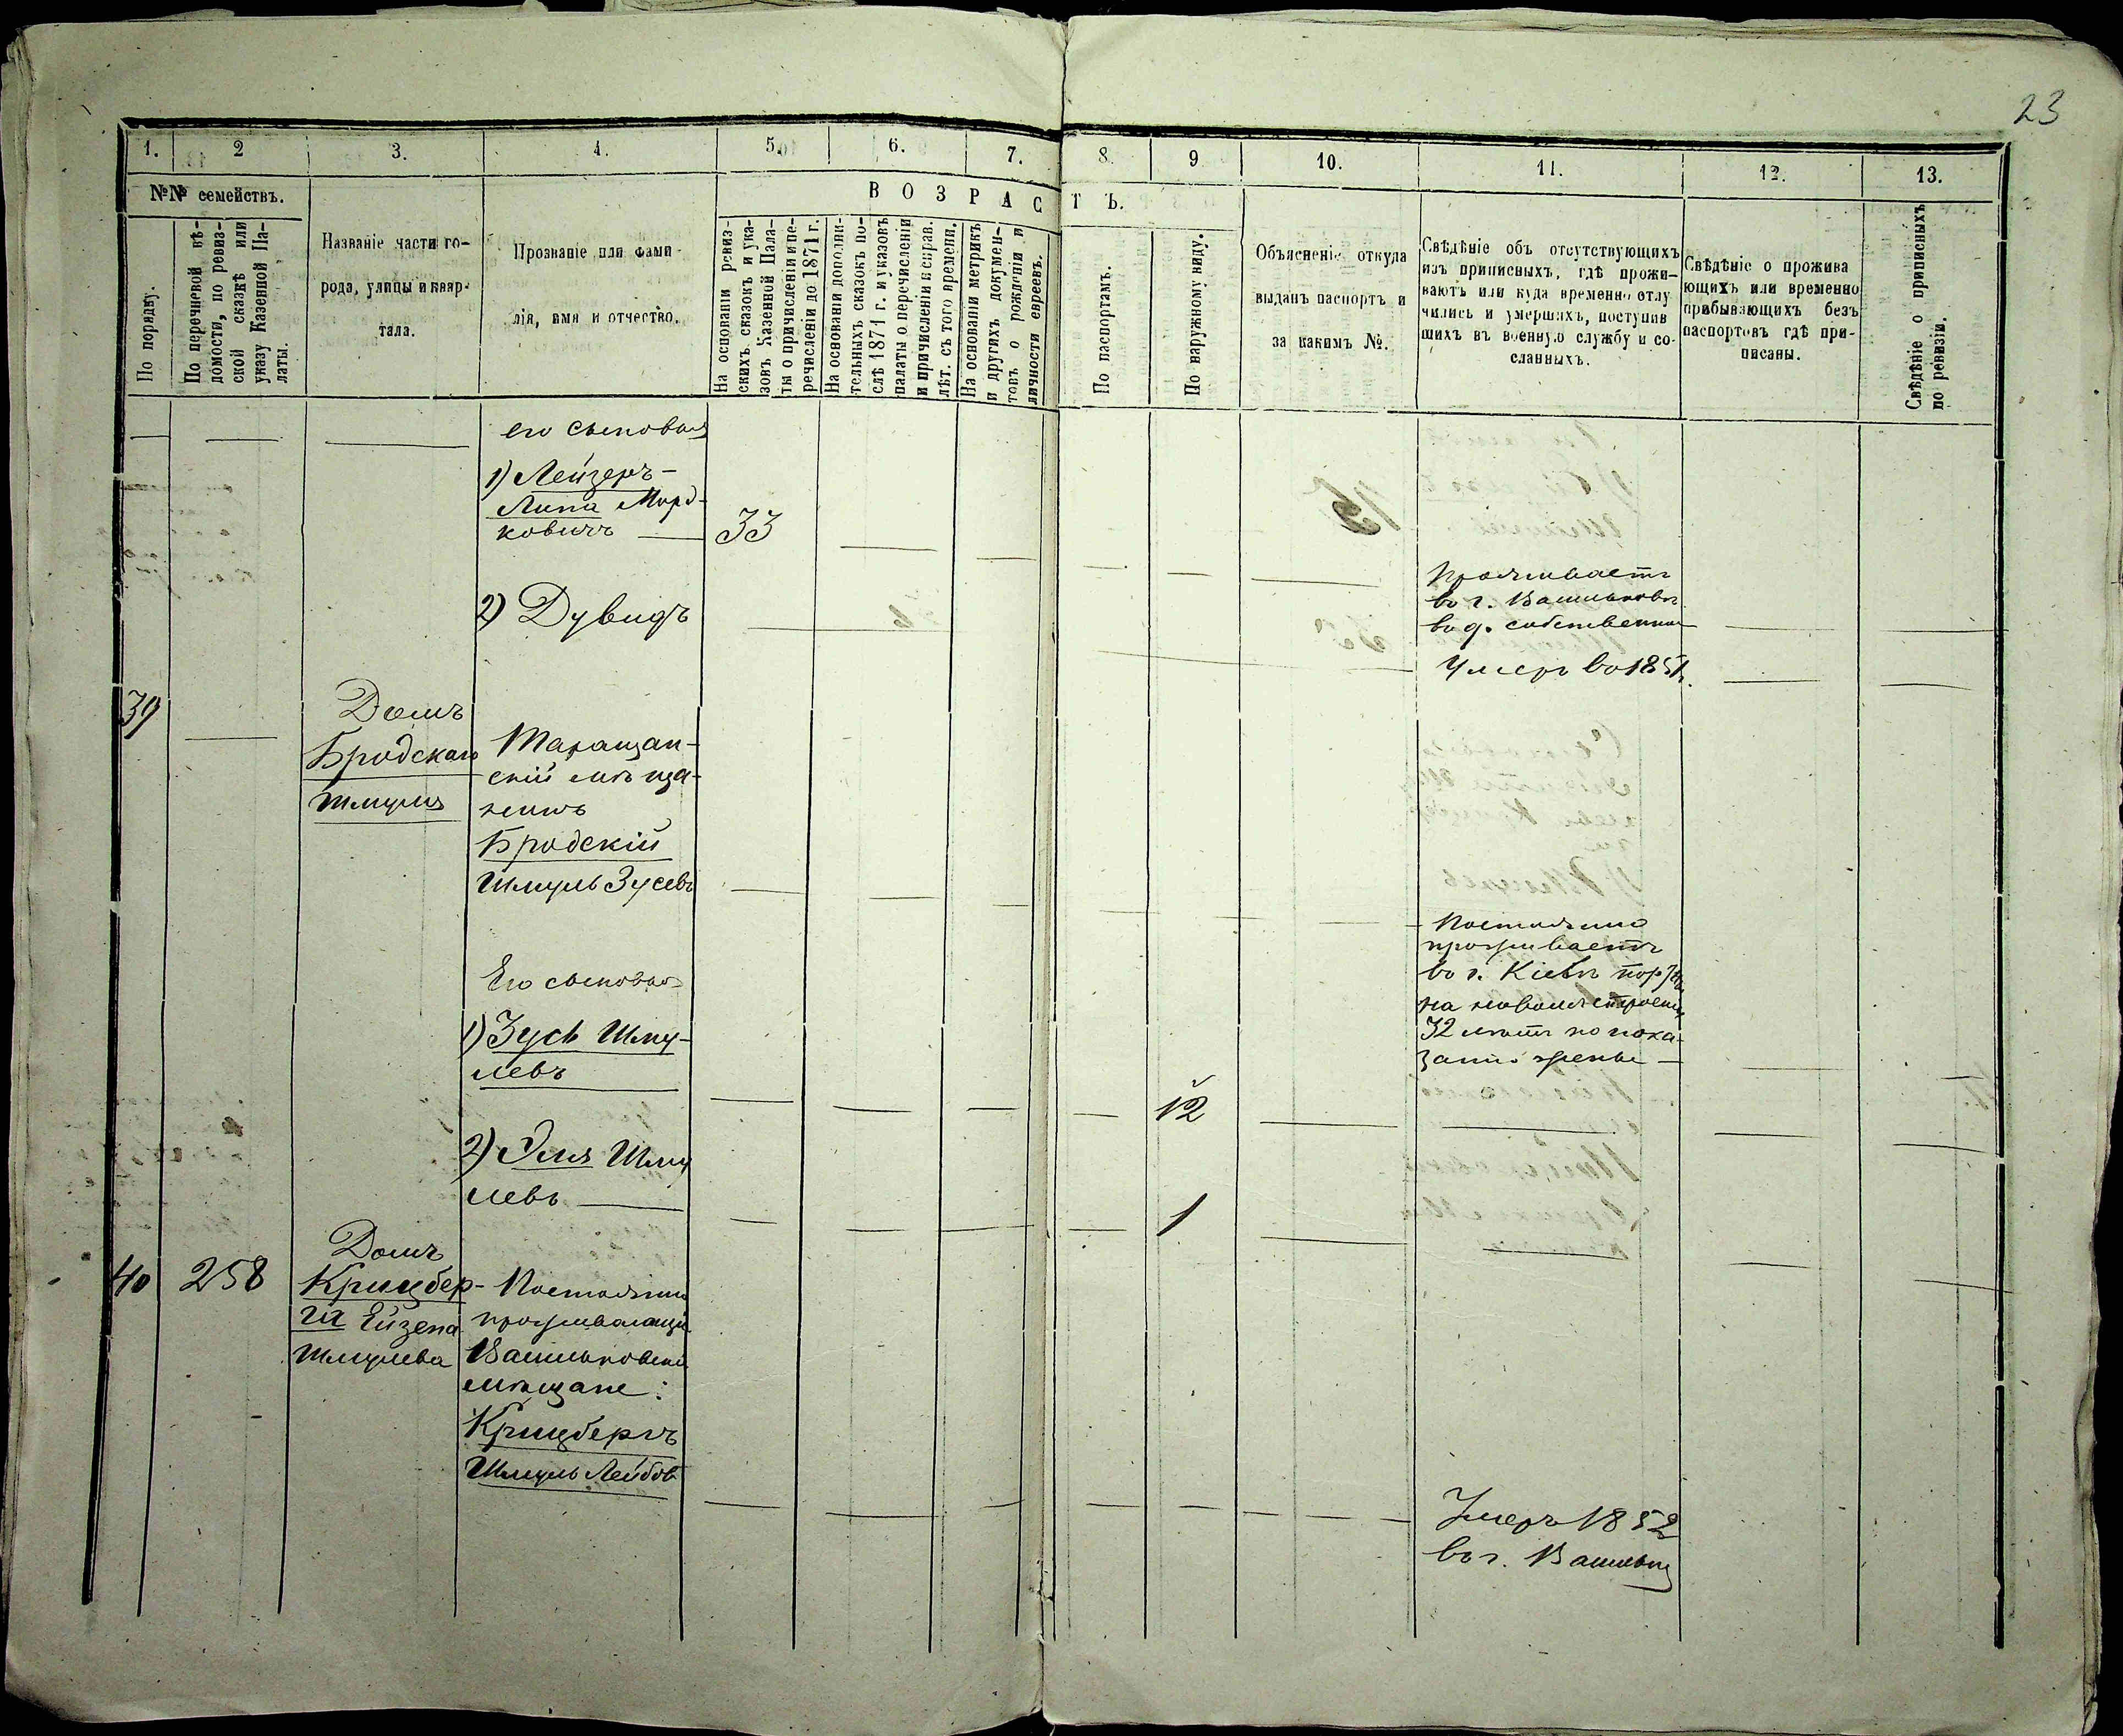 23
1. 2 3. 4. 5. 6. 7. 8. 9 10. 11. 12. 13.
№№ семействъ.
По порядку.
По перечневой вѣ-
домости, по ревиз-
ской сказкѣ или
указу Казенной Па-
латы.
Названіе части го-
рода, улицы и квар-
тала.
Прозваніе или фами-
лія, имя и отчество.
ВОЗРАСТЪ.
На основаніи ревиз-
скихъ сказокъ и ука-
зовъ Казенной Пала-
ты о причисленіи и пе-
речисленіи до 1871 г.
На основаніи дополни-
тельныхъ сказокъ по-
слѣ 1871 г. и указовъ
палаты о перечисленіи
и причисленіи и справ.
лѣт. съ того времени.
На основаніи метрикъ
и другихъ докумен-
товъ о рожденіи и
личности евреевъ.
По паспортамъ.
По наружному виду.
Объясненіе откуда
выданъ паспортъ и
за какимъ №.
Свѣдѣніе объ отсутствующихъ
изъ приписныхъ, гдѣ прожи-
ваютъ или куда временно отлу
чились и умершихъ, поступив
шихъ въ военную службу и со-
сланныхъ.
Свѣдѣніе о прожива
ющихъ или временно
прибывающихъ безъ
паспортовъ гдѣ при-
писаны.
Свѣдѣніе о приписныхъ
по ревизіи.
его сыновья
1) Лейзеръ-
Липа Морд-
ковичъ 33
Проживаетъ
въ г. Васильковѣ
въ д. собственномъ
2) Дувидъ
Умеръ въ 1851 г.
39
Домъ
Бродскаго
Шмуля
Таращан-
скій мѣща-
нинъ
Бродскій
Шмуль Зусевъ
Постоянно
проживаетъ
въ г. Кіевѣ
на новомъ строеніи
32 лѣтъ по пока-
занію жены
Его сыновья
1) Зусь Шму-
левъ 12
2) Эля Шму
левъ 1
40 258
Домъ
Крицбер-
га Ейзена
Шмулева
Постоянно
проживающіе
Васильковскіе
мѣщане:
Крицбергъ
Шмуль Лейбов
Умеръ 1852
въ г. Васильк